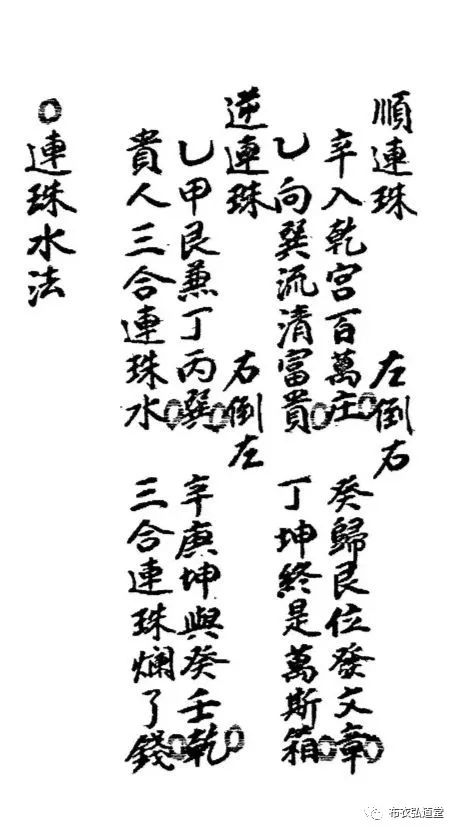 順連珠 左倒右
辛入乾宮百萬庄 癸歸艮位發文章
乙向巽流清富貴 丁坤終是萬斯箱
逆連珠 右倒左
乙甲艮兼丁丙巽 辛庚坤與癸壬乾
貴人三合連珠水 三合連珠爛了錢
○連珠水法
布衣弘道堂